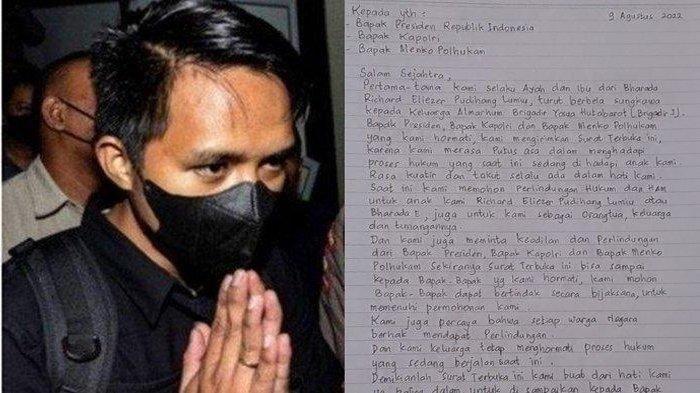 Kepada yth :
9 Agustus 2022
- Bapak Presiden Republik Indonesia
- Bapak Kapolri
- Bapak Menko Polhukam
Salam Sejahtra,
Pertama-tama kami selaku Ayah dan Ibu dari Bharada
Richard Eliezer Pudihang Lumiu, turut berbela sungkawa
kepada Keluarga Almarhum Brigadir Yosua Hutabarat (Brigadir J).
Bapak Presiden, Bapak Kapolri dan Bapak Menko Polhukam
yang kami hormati, kami mengirimkan Surat Terbuka ini,
karena kami merasa Putus asa dalam menghadapi
proses hukum yang saat ini sedang di hadapi anak kami.
Rasa kuatir dan takut selalu ada dalam hati kami.
Saat ini kami memohon Perlindungan Hukum dan HAM
untuk anak kami Richard Eliezer Pudihang Lumiu atau
Bharada E, juga untuk kami sebagai Orangtua, keluarga
dan tunangannya.
Dan kami juga meminta keadilan dan Perlindungan
dari Bapak Presiden, Bapak Kapolri dan Bapak Menko
Polhukam Sekiranya Surat Terbuka ini bisa sampai
kepada Bapak-Bapak yg kami hormati, kami mohon
Bapak-Bapak dapat bertindak secara bijaksana, untuk
memenuhi permohonan kami.
Kami juga percaya bahwa setiap warga Negara
berhak mendapat Perlindungan.
Dan kami keluarga tetap menghormati proses hukum
yang sedang berjalan saat ini.
Demikianlah Surat Terbuka ini kami buat dari hati kami
dalam untuk di sampaikan kepada Bapak